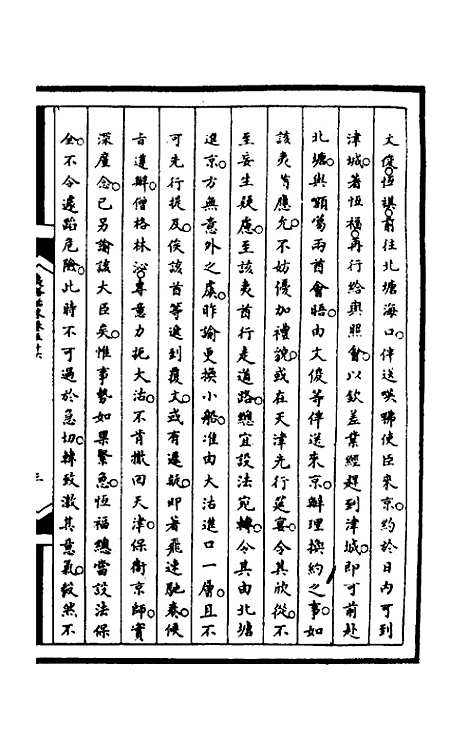 文俊恆祺前往北塘海口伴送𠸄咈使臣來京約於日內可到
津城著恆福再行給與照會以欽差業經趕到津城即可前赴
北塘與額噶兩酋會晤由文俊等伴送來京辦理換約之事如
該夷肯應允不妨優加禮貌或在天津先行筵宴令其欣從不
至妄生疑慮至該夷酋行走道路總宜設法宛轉令其由北塘
進京方無意外之虞昨諭更換小船准由大沽進口一層且不
可先行提及俟該酋等遞到覆文或有遲疑即著飛速馳奏候
旨遵辦僧格林沁專意力扼大沽不肯撤回天津保衛京師實
深廑念已另諭該大臣矣惟事勢如果緊急恆福總當設法保
全不令遽蹈危險此時不可過於急切轉致激其意氣毅然不
三